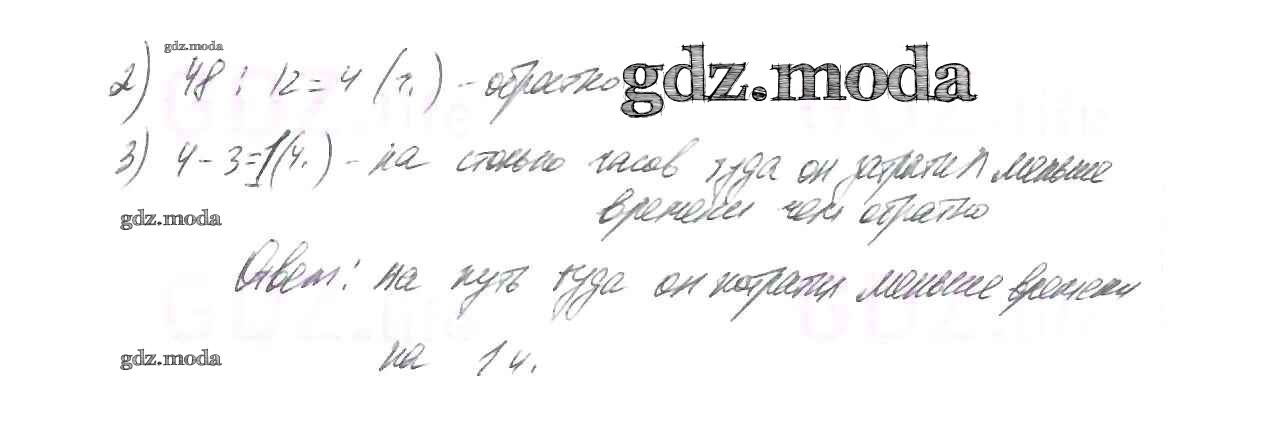 gdz.moda
2) 48 : 12 = 4 (ч.) - обратно gdz.moda
3) 4 - 3 = 1 (ч.) - на столько часов туда он затратил меньше
gdz.moda
времени чем обратно
Ответ: на путь туда он потратил меньше времени
gdz.moda
на 1 ч.